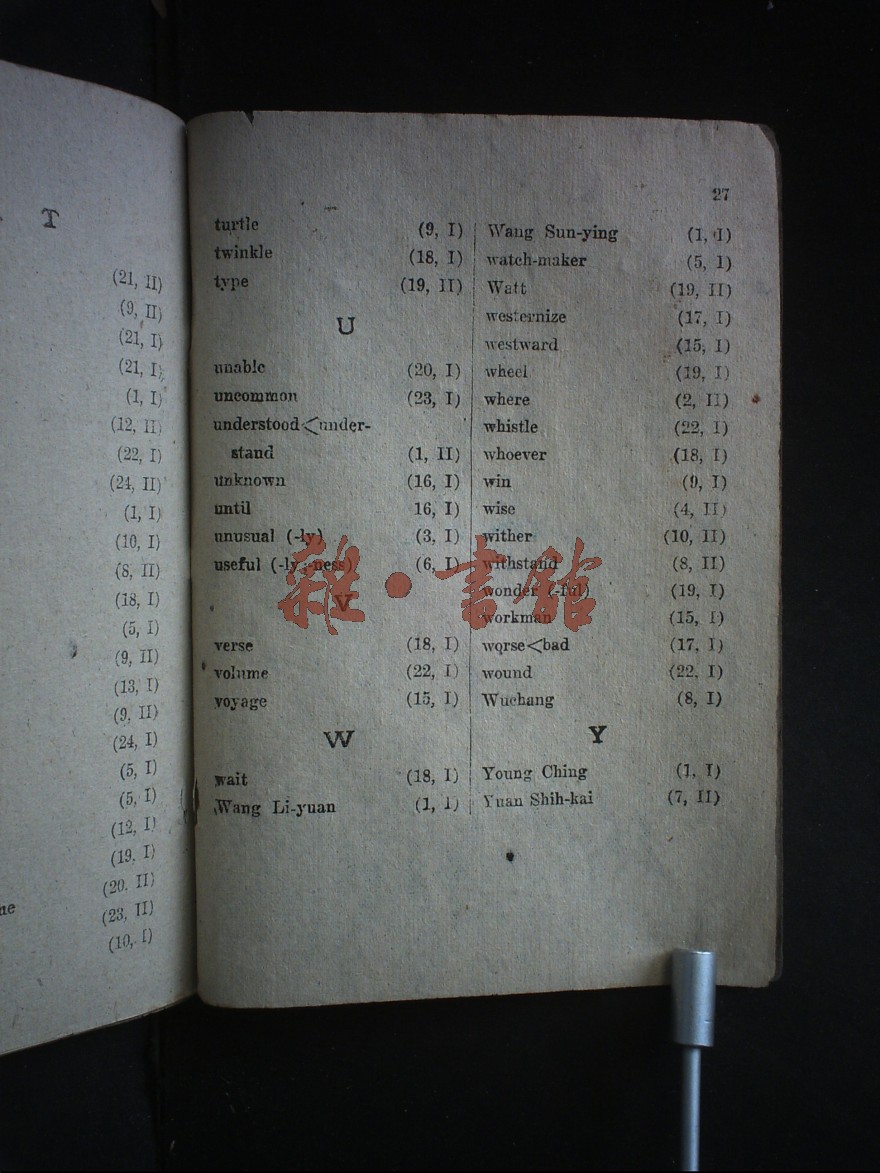 T
(21, II)
(9, II)
(21, I)
(21, I)
(1, I)
(12, II)
(22, I)
(24, II)
(1, I)
(10, I)
(8, II)
(18, I)
(5, I)
(9, II)
(13, I)
(9, II)
(24, I)
(5, I)
(5, I)
(12, I)
(19, I)
(20, II)
(23, II)
(10, I)
27
turtle (9, I)
twinkle (18, I)
type (19, II)
U
unable (20, I)
uncommon (23, I)
understood<under-
stand (1, II)
unknown (16, I)
until 16, I)
unusual (-ly) (3, I)
useful (-ly, -ness) (6, I)
V
verse (18, I)
volume (22, I)
voyage (15, I)
W
wait (18, I)
Wang Li-yuan (1, I)
Wang Sun-ying (1, I)
watch-maker (5, I)
Watt (19, II)
westernize (17, I)
westward (15, I)
wheel (19, I)
where (2, II)
whistle (22, I)
whoever (18, I)
win (9, I)
wise (4, II)
wither (10, II)
withstand (8, II)
wonder (-ful) (19, I)
workman (15, I)
worse<bad (17, I)
wound (22, I)
Wuchang (8, I)
Y
Young Ching (1, I)
Yuan Shih-kai (7, II)
雜·書館